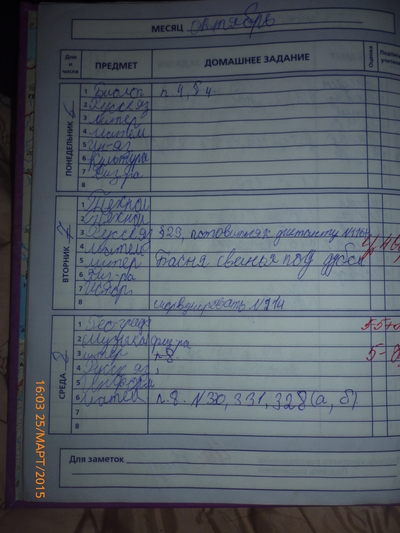 МЕСЯЦ октябрь
Дни и числа ПРЕДМЕТ ДОМАШНЕЕ ЗАДАНИЕ Оценка
ПОНЕДЕЛЬНИК 6
1 Биолог п 4, § 4
2 Русск яз
3 литер
4 Матем
5 ин-яз
6 Культура
7 Физ-ра
8
ВТОРНИК 7
1 Технол
2 Технол
3 Русск яз § 23, готовиться к диктанту
4 Матем
5 литер Басня свинья под дубом
6 Физ-ра
7 Истор
8 № 214
СРЕДА 8
1 Географ
2 Музыка физ-ра
3 п 9
4 Русск яз
5 Информ
6 Матем п. 8. N 30, 331, 328 (а, б)
7
8
Для заметок
16:03 25/МАРТ/2015